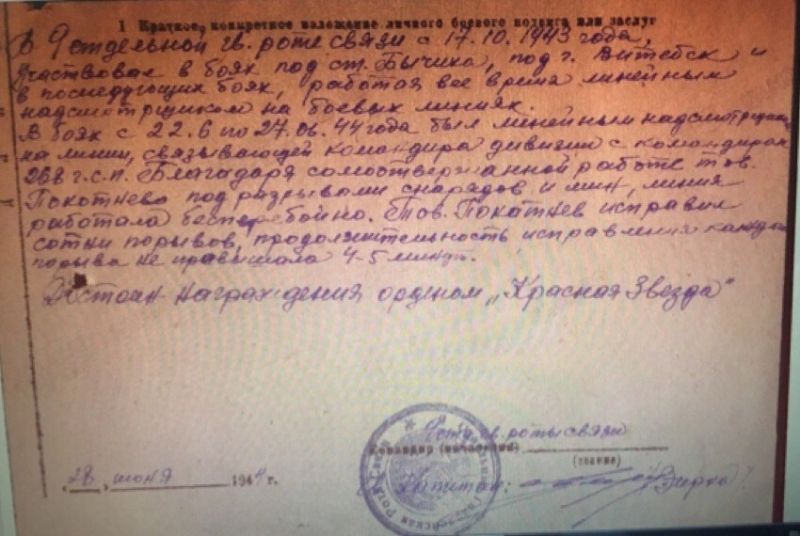 1 Краткое, конкретное изложение личного боевого подвига или заслуг
В 9 отдельной гв. роте связи с 17.10.1943 года,
участвовал в боях под ст. Бычиха, под г. Витебск и
в последующих боях, работая все время линейным
надсмотрщиком на боевых линиях.
В боях с 22.6 по 27.06.44 года был линейным надсмотрщиком
на линии, связывающей командира дивизии с командиром
г.с.п. Благодаря самоотверженной работе тов.
Покотнева под разрывами снарядов и мин, линия
работала бесперебойно. Тов. Покотнев исправил
сотни порывов, продолжительность исправления каждого
порыва не превышала 4-5 минут.
Достоин награждения орденом „Красная Звезда"
9 отд. гв. роты связи
Командир (начальник)
(звание)
„28" июня 1944 г.
Капитан: